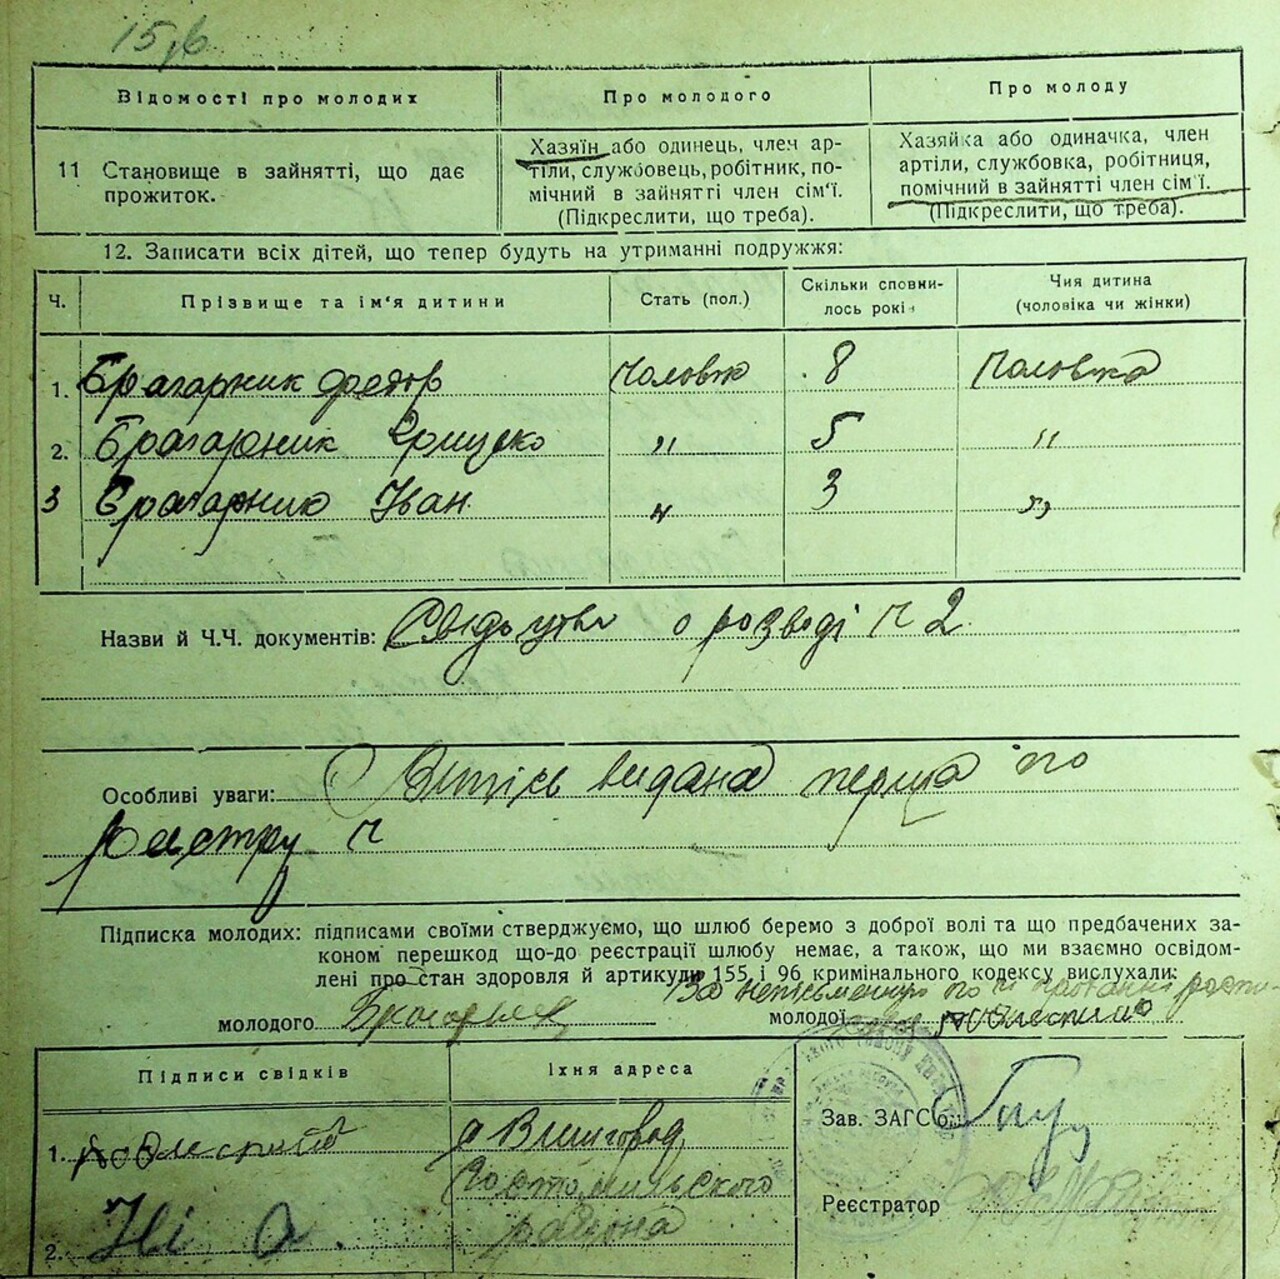 15
Відомості про молодих
Про молодого
Про молоду
11 Становище в зайнятті, що дає
прожиток.
Хазяїн або одинець, член ар-
тіли, службовець, робітник, по-
мічний в зайнятті член сім'ї.
(Підкреслити, що треба).
Хазяйка або одиначка, член
артіли, службовка, робітниця,
помічний в зайнятті член сім'ї.
(Підкреслити, що треба).
12. Записати всіх дітей, що тепер будуть на утриманні подружжя:
Ч.
Прізвище та ім'я дитини
Стать (пол.)
Скільки сповни-
лось років
Чия дитина
(чоловіка чи жінки)
1. Брагарник Федор 8 Чоловіка
2. Брагарник Грицко " 5 "
3 Брагарник Іван " 3 "
Назви й Ч.Ч. документів: Свідоцтво о розводі Ч 2
Особливі уваги: Випісь видана перша по
реєстру Ч
Підписка молодих: підписами своїми стверджуємо, що шлюб беремо з доброї волі та що предбачених за-
коном перешкод що-до реєстрації шлюбу немає, а також, що ми взаємно освідом-
лені про стан здоровля й артикули 155 і 96 кримінального кодексу вислухали:
За неписьменну по її
молодого
молодої
Підписи свідків
Їхня адреса
1.
с Вишгород
Гостомильського
района
2.
Зав. ЗАГС'ом
Реєстратор